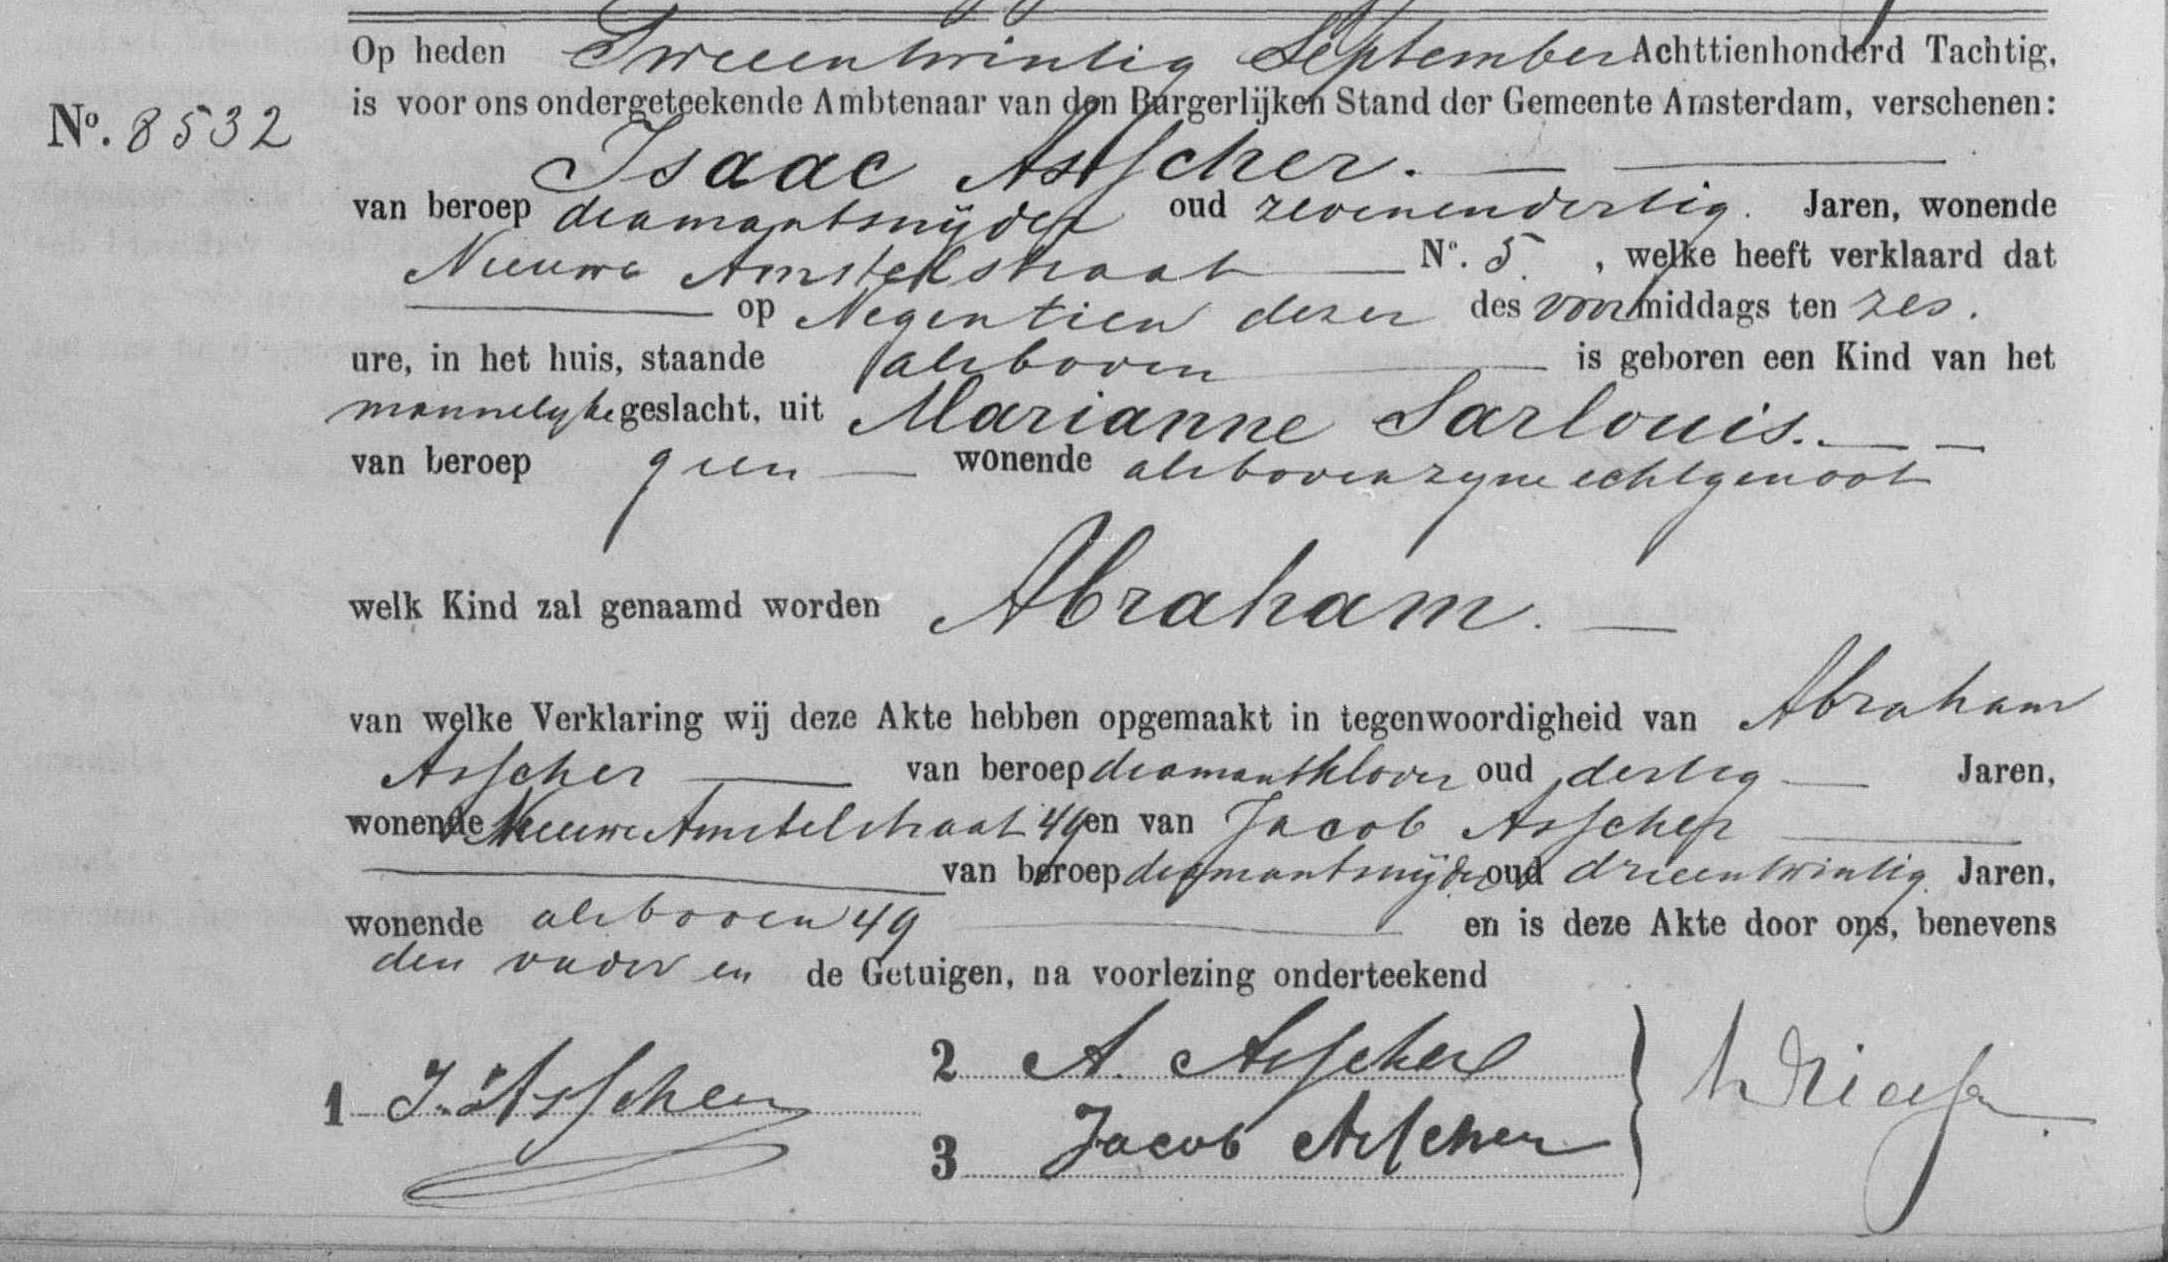 Op heden Tweeentwintig September Achttienhonderd Tachtig,
is voor ons ondergeteekende Ambtenaar van den Burgerlijken Stand der Gemeente Amsterdam, verschenen:
No. 8532
Isaac Asscher.
van beroep diamantsnijder oud zevenendertig. Jaren, wonende
Nieuwe Amstelstraat No. 5, welke heeft verklaard dat
op Negentien dezer des voormiddags ten zes.
ure, in het huis, staande alsboven is geboren een Kind van het
mannelyke geslacht, uit Marianne Sarlouis.
van beroep geen wonende alsboven zyne echtgenoot
welk Kind zal genaamd worden Abraham.
van welke Verklaring wij deze Akte hebben opgemaakt in tegenwoordigheid van Abraham
Asscher van beroep diamantklover oud dertig Jaren,
wonende Nieuwe Amstelstraat 49 en van Jacob Asscher
van beroep diamantsnijder oud drieentwintig Jaren,
wonende alsboven 49 en is deze Akte door ons, benevens
den vader en de Getuigen, na voorlezing onderteekend
1 J. Asscher
2 A. Asscher
3 Jacob Asscher